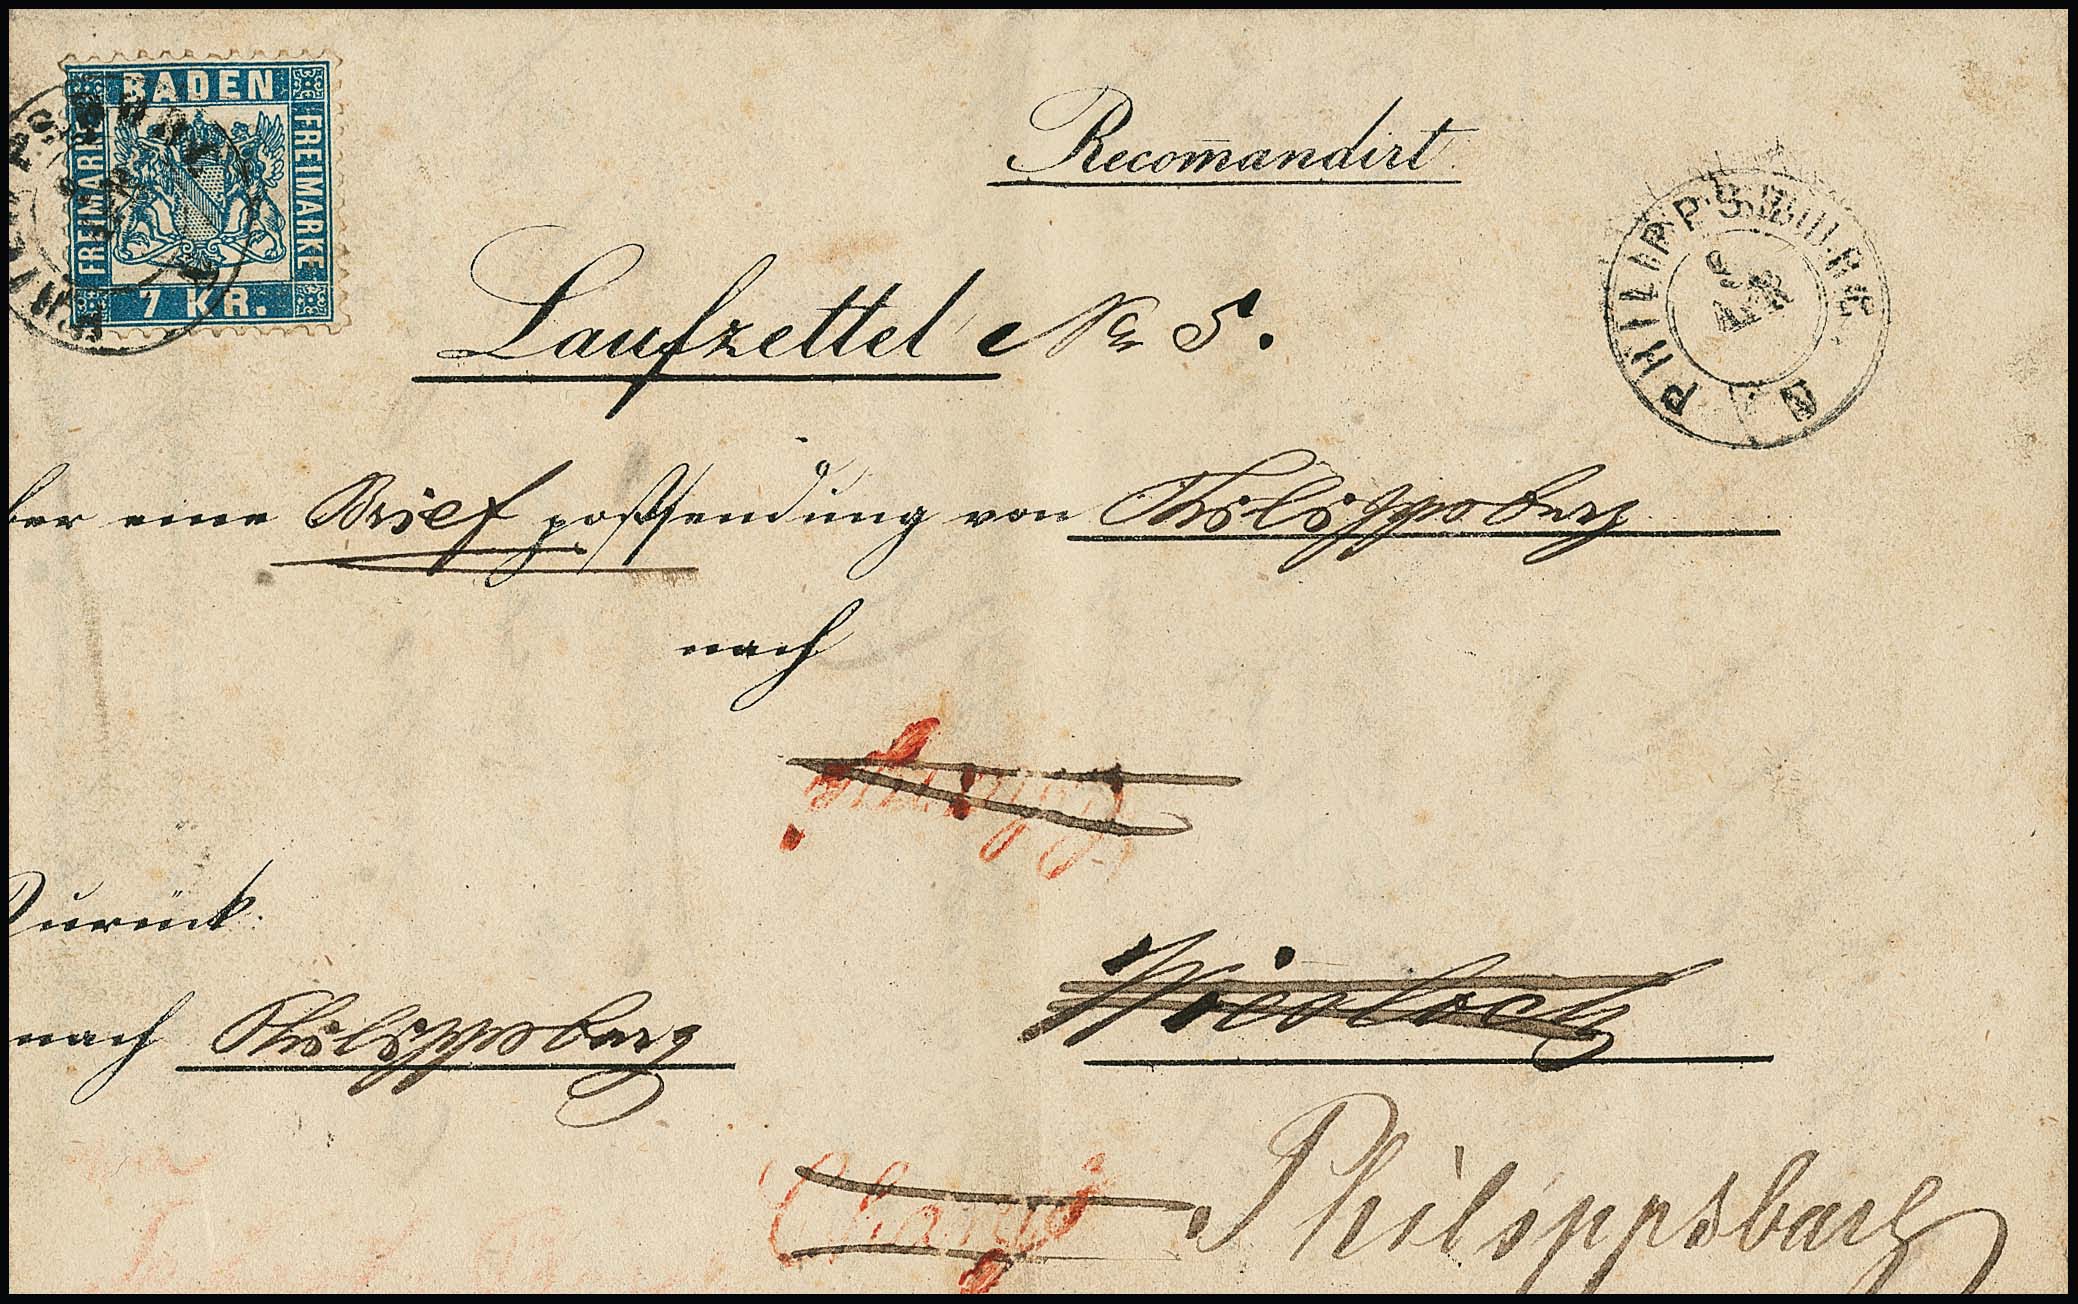 BADEN
FREIMARKE
FREIMARKE
7 KR.
Recom̄andirt
PHILIPPSBURG
9 APR
Laufzettel No 5.
ber eine Brief postsendung von Philippsburg
nach
Zurück
Wiesloch
nach Philippsburg
Chargé
Philippsburg